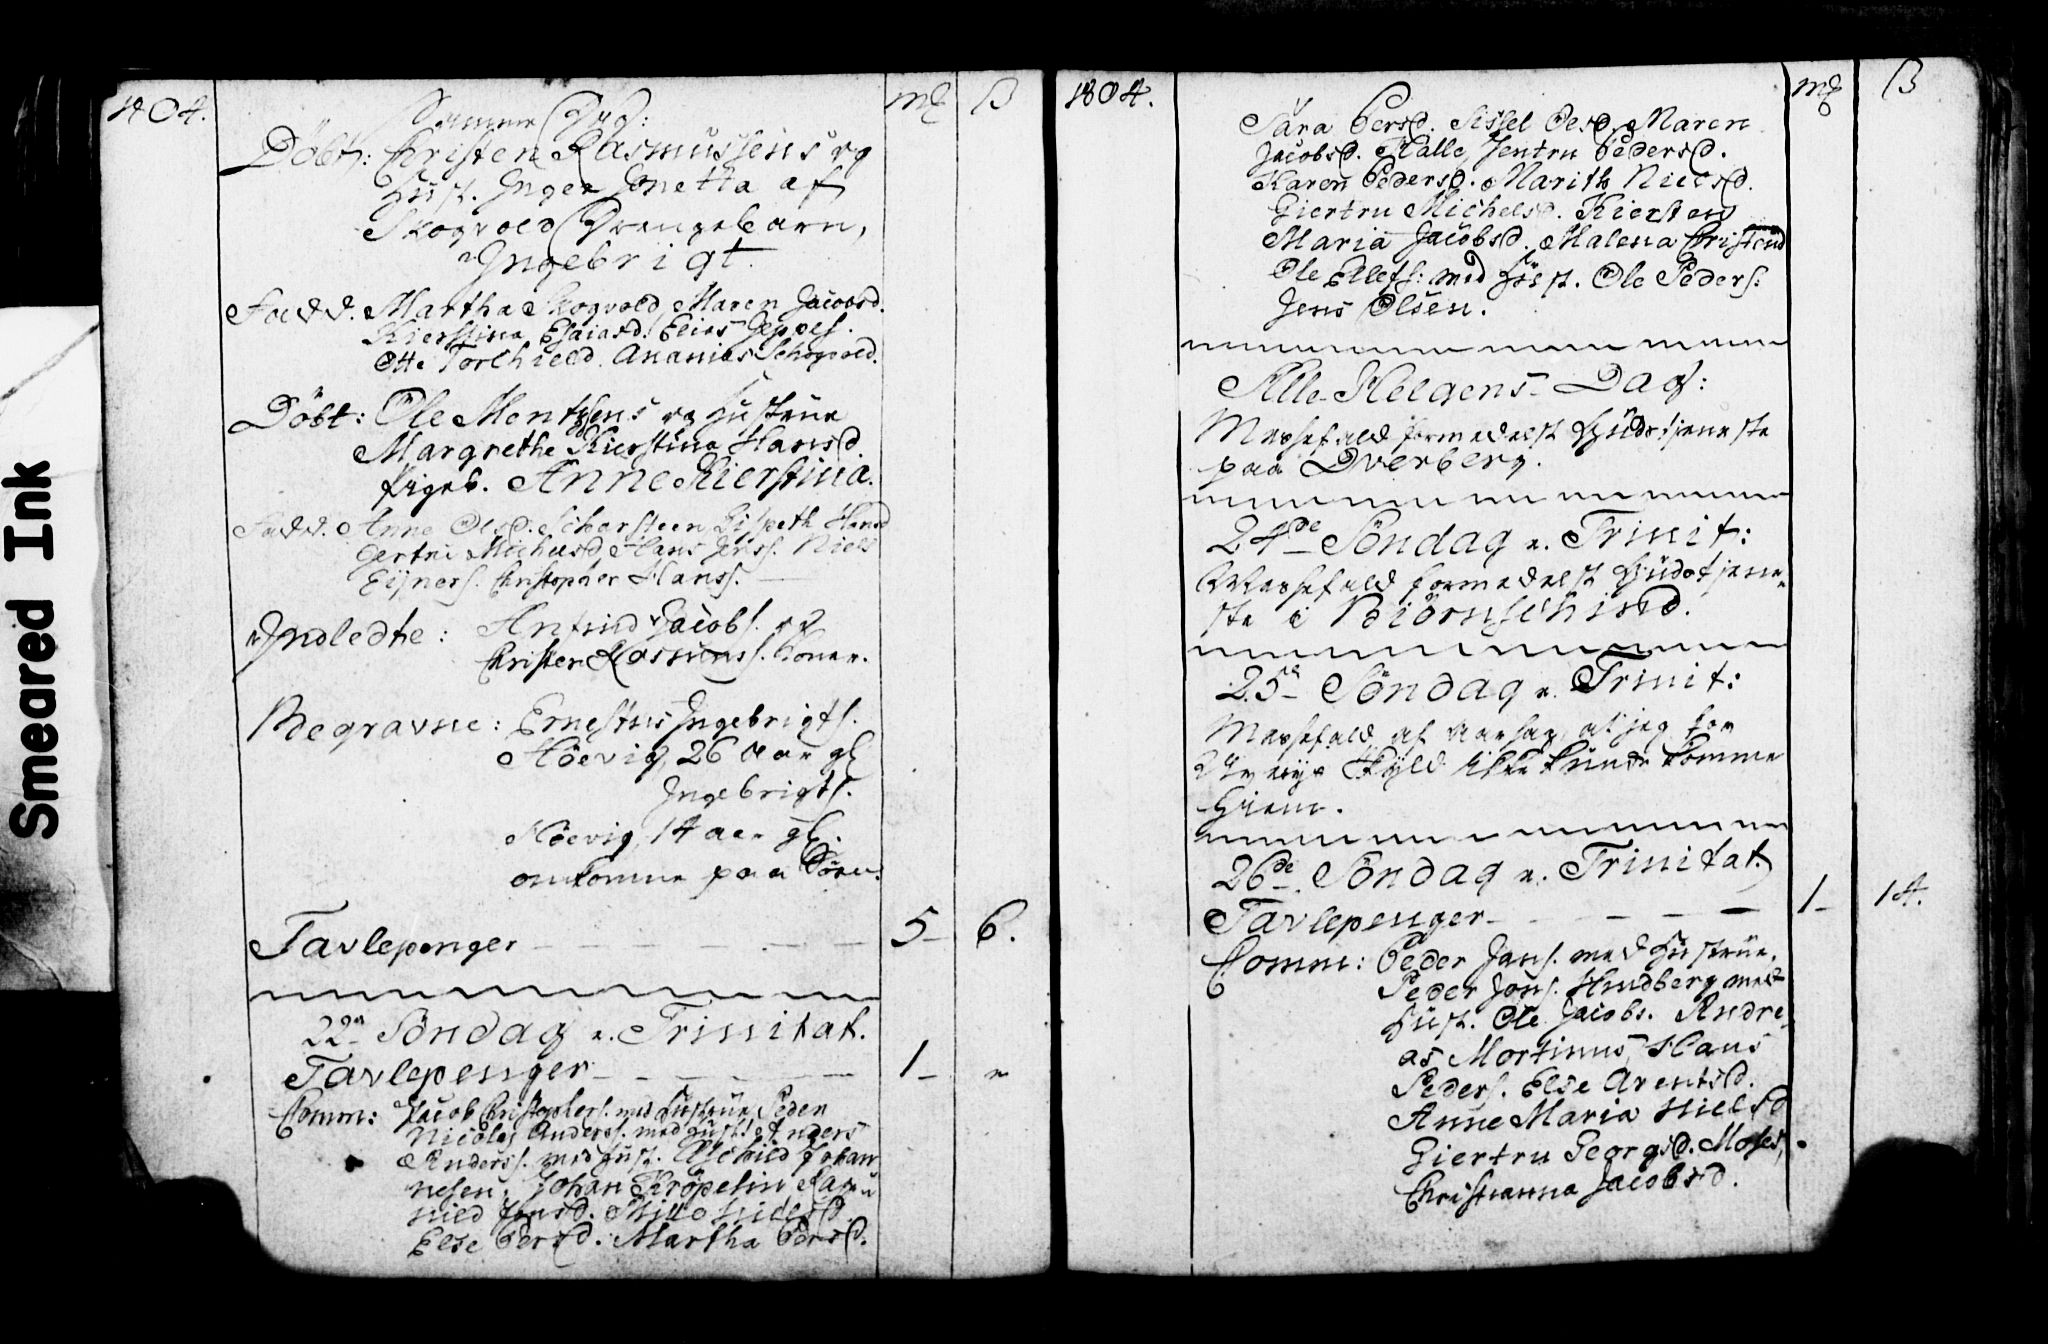 Smeared Ink
1804.
mꝃ ẞ
Samme Dag:
Döbt: Christen Rasmussens og
Hust. Inger Jonetta af
Skogvold Drengebarn,
Ingebrigt.
Fadd. Martha Skogvold, Maren Jacobsd.
Kierstina Esaiasd. Elias Jeppes.
Ott. Torchield. Ananias Schogvold.
Döbt: Ole Montzens og Hustrue
Margrethe Kierstina Hansd.
Pigeb. Anne Kierstina.
Fadd. Anne Olsd. Scharsteen Lispeth Hansd
Gertru Michelsd Hans Jenss. Niels
Eijners. Christopher Hanss.
Indledte: Anfind Jacobs. og
Christen Rasmuss. Koner.
Begravne: Ernestus Ingebrigts.
Höevig, 26 Aar gl
Ingebrigts.
Höevig, 14 aar gl.
omkomne paa Söen.
Tavlepenger 5 6.
22de Söndag e. Trinitat.
Tavlepenger 1 "
Comm: Jacob Christophers. med Hustrue, Peder
Nicolai Anderss. med Hust. Anders
Anderss. med Hust. Aschild Johan
nesen, Johan Kröpelin Rag
nild Jonsd. Sille Nielsd.
Else Persd. Martha Persd.
1804.
mꝃ ẞ
Sara Persd. Sissel Olsd. Maren
Jacobsd. Kalle, Jentru Pedersd.
Karen Pedersd. Marith Nielsd.
Giertru Michelsd. Kiersten
Maria Jacobsd. Malena Christensd
Ole Ellefs: med Hust. Ole Peders:
Jens Olsen.
Alle Helgens Dag:
Messefald formedelst Gudstjeneste
paa Dverberg.
24de Söndag e. Trinit:
Messefald formedelst Gudstjene-
ste i Biörnschind.
25de Söndag e. Trinit:
Messefald af Aarsag, at jeg for
Uveyrs Skyld ikke kunde komme
Hiem.
26de Söndag e. Trinitat.
Tavlepenger 1 14.
Comm: Peder Jans. med Hustrue.
Peder Jons. Hindberg med
Hust. Ole Jacobs. Andre
as Mortinus, Hans
Peders. Else Arentsd.
Anne Maria Nielsd
Giertru Georgsd. Moses,
Christianna Jacobsd.